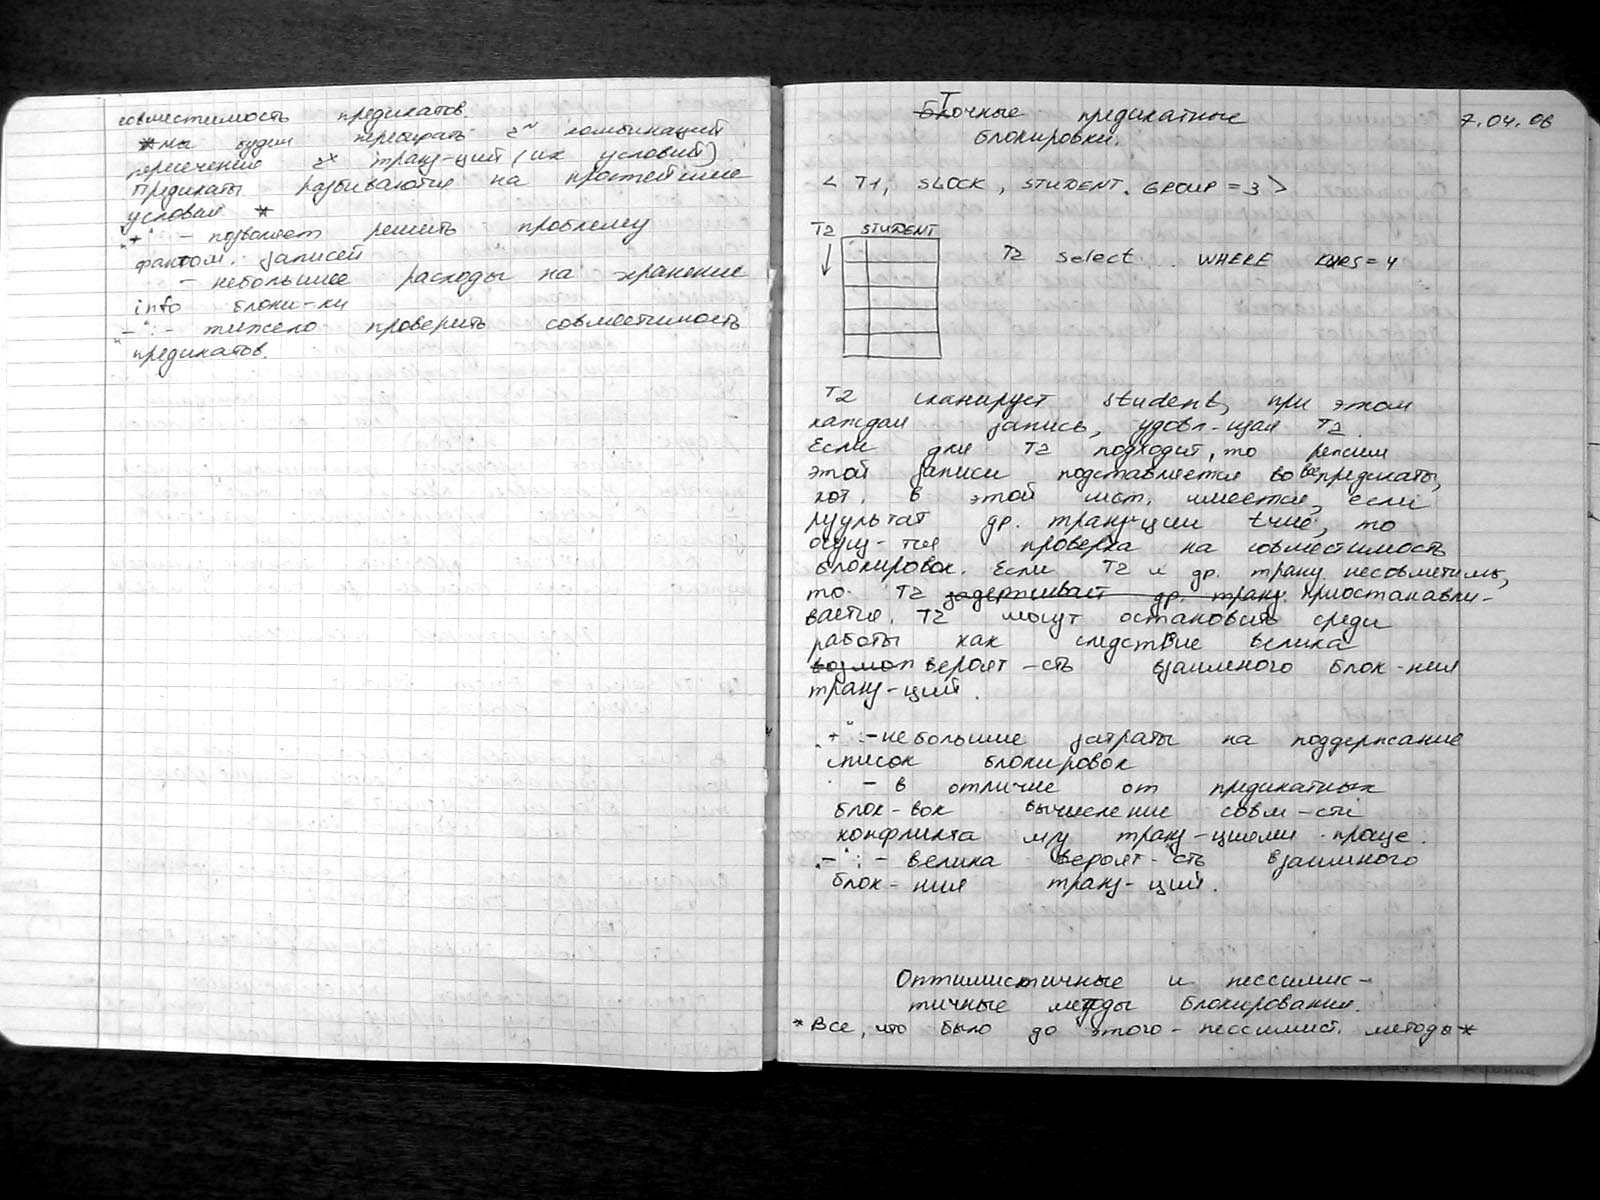 совместимость предикатов.
*Мы будем перебирать 2ⁿ комбинаций
пересечение 2х транз-ций (их условий)
Предикаты разбиваются на простейшие
условия *
"+" - позволяет решить проблему
фантом. записей
- небольшие расходы на хранение
info блоки-ки
"-": - тяжело проверить совместимость
предикатов.
Точные предикатные
блокировки.
7.04.06
< T1, SLOCK, STUDENT. GROUP = 3 >
T2 STUDENT
T2 select ... WHERE KURS = 4
T2 сканирует student, при этом
каждая запись, удовл-щая T2.
Если для T2 подходит, то
этой записи подставляется во все предикаты,
кот. в этой имеется, если
результат др. транз-ции true, то
осущ-тся проверка на совместимость
блокировок. Если T2 и др. транз. несовметимы,
то T2 задерживает др. транз. приостанавли-
вается. T2 могут остановить среди
работы как следствие велика
возмож вероят-сть взаимного блок-ния
транз-ций.
"+": - небольшие затраты на поддержание
список блокировок
- в отличие от предикатных
блок-вок вычисление совм-сті
конфликта м/у транз-циями проще.
"-": - велика вероят-сть взаимного
блок-ния транз-ций.
Оптимистичные и пессимис-
тичные методы блокирования.
* Все, что было до этого - пессимист. методы *